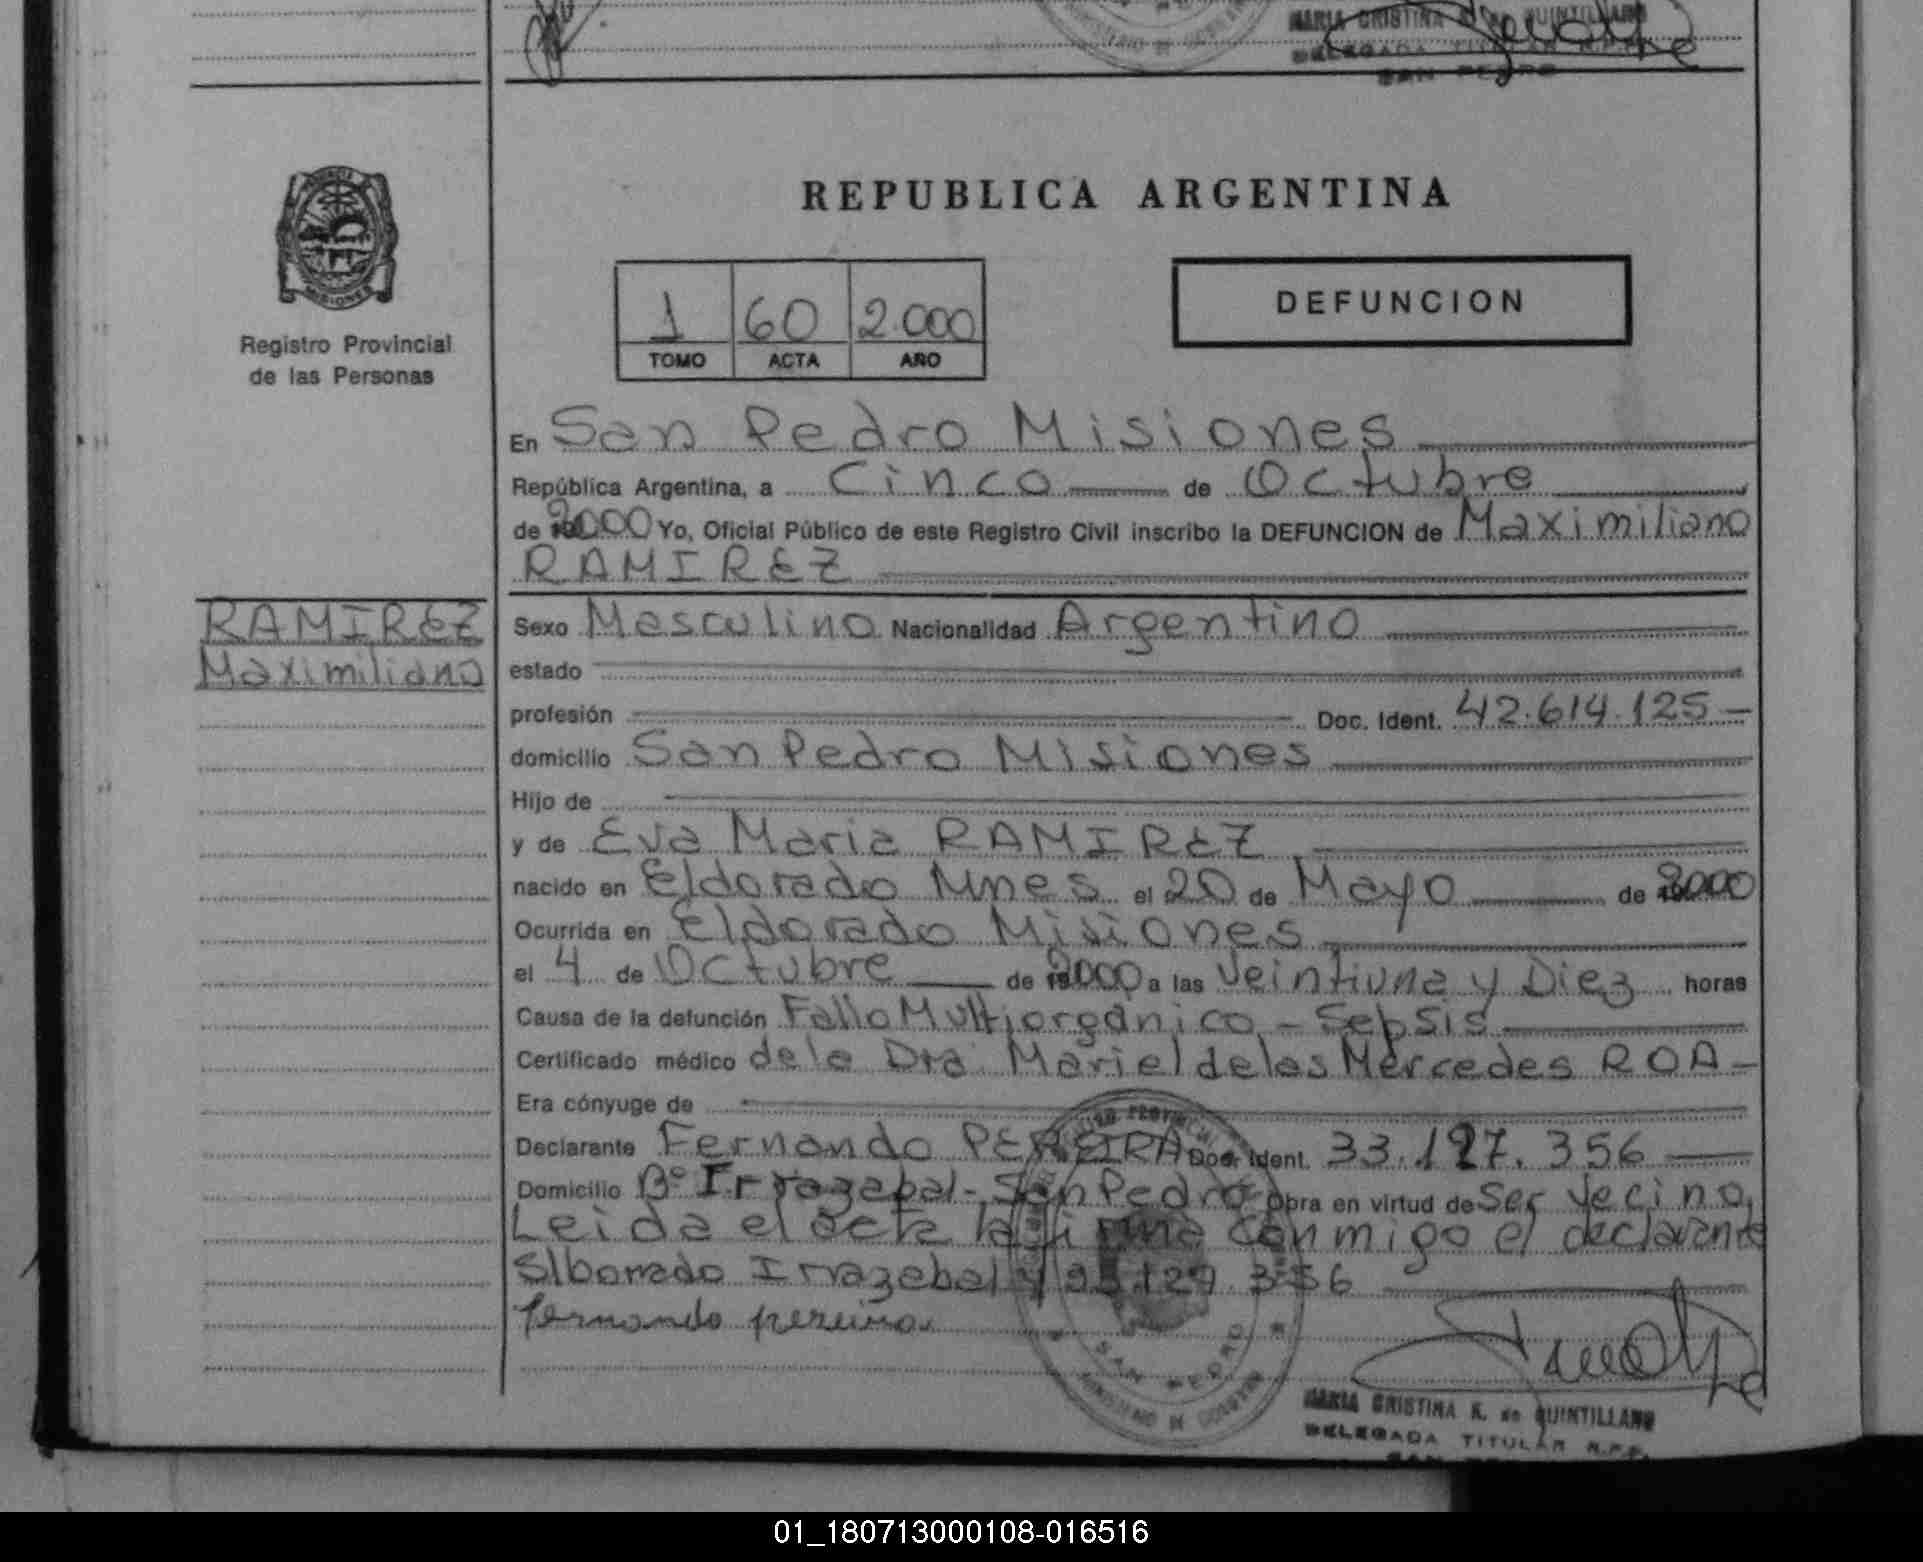 MARIA CRISTINA K. de QUINTILLANO
DELEGADA TITULAR R.P.P.
SAN PEDRO
PROVINCIA DE
MISIONES
Registro Provincial
de las Personas
REPUBLICA ARGENTINA
1 60 2.000
TOMO ACTA AÑO
DEFUNCION
En San Pedro Misiones
República Argentina, a Cinco de Octubre
de 2000 Yo, Oficial Público de este Registro Civil inscribo la DEFUNCION de Maximiliano
RAMIREZ
RAMIREZ
Maximiliano
Sexo Masculino Nacionalidad Argentino
estado
profesión Doc. Ident. 42.614.125
domicilio San Pedro Misiones
Hijo de
y de Eva Maria RAMIREZ
nacido en Eldorado Mnes el 20 de Mayo de 2000
Ocurrida en Eldorado Misiones
el 4 de Octubre de 2000 a las Veintiuna y Diez horas
Causa de la defunción Fallo Multiorgánico - Sepsis
Certificado médico de la Dra. Mariel de las Mercedes ROA
Era cónyuge de
Declarante Fernando PEREIRA Doc. Ident. 33.127.356
Domicilio B° Irrazabal - San Pedro Obra en virtud de Ser Vecino,
Leida el acta la firma conmigo el declarante
S/borrado Irrazabal y 33.127.356
fernando pereira
SAN PEDRO
MINISTERIO DE GOBIERNO
MARIA CRISTINA K. de QUINTILLANO
DELEGADA TITULAR R.P.P.
01_180713000108-016516